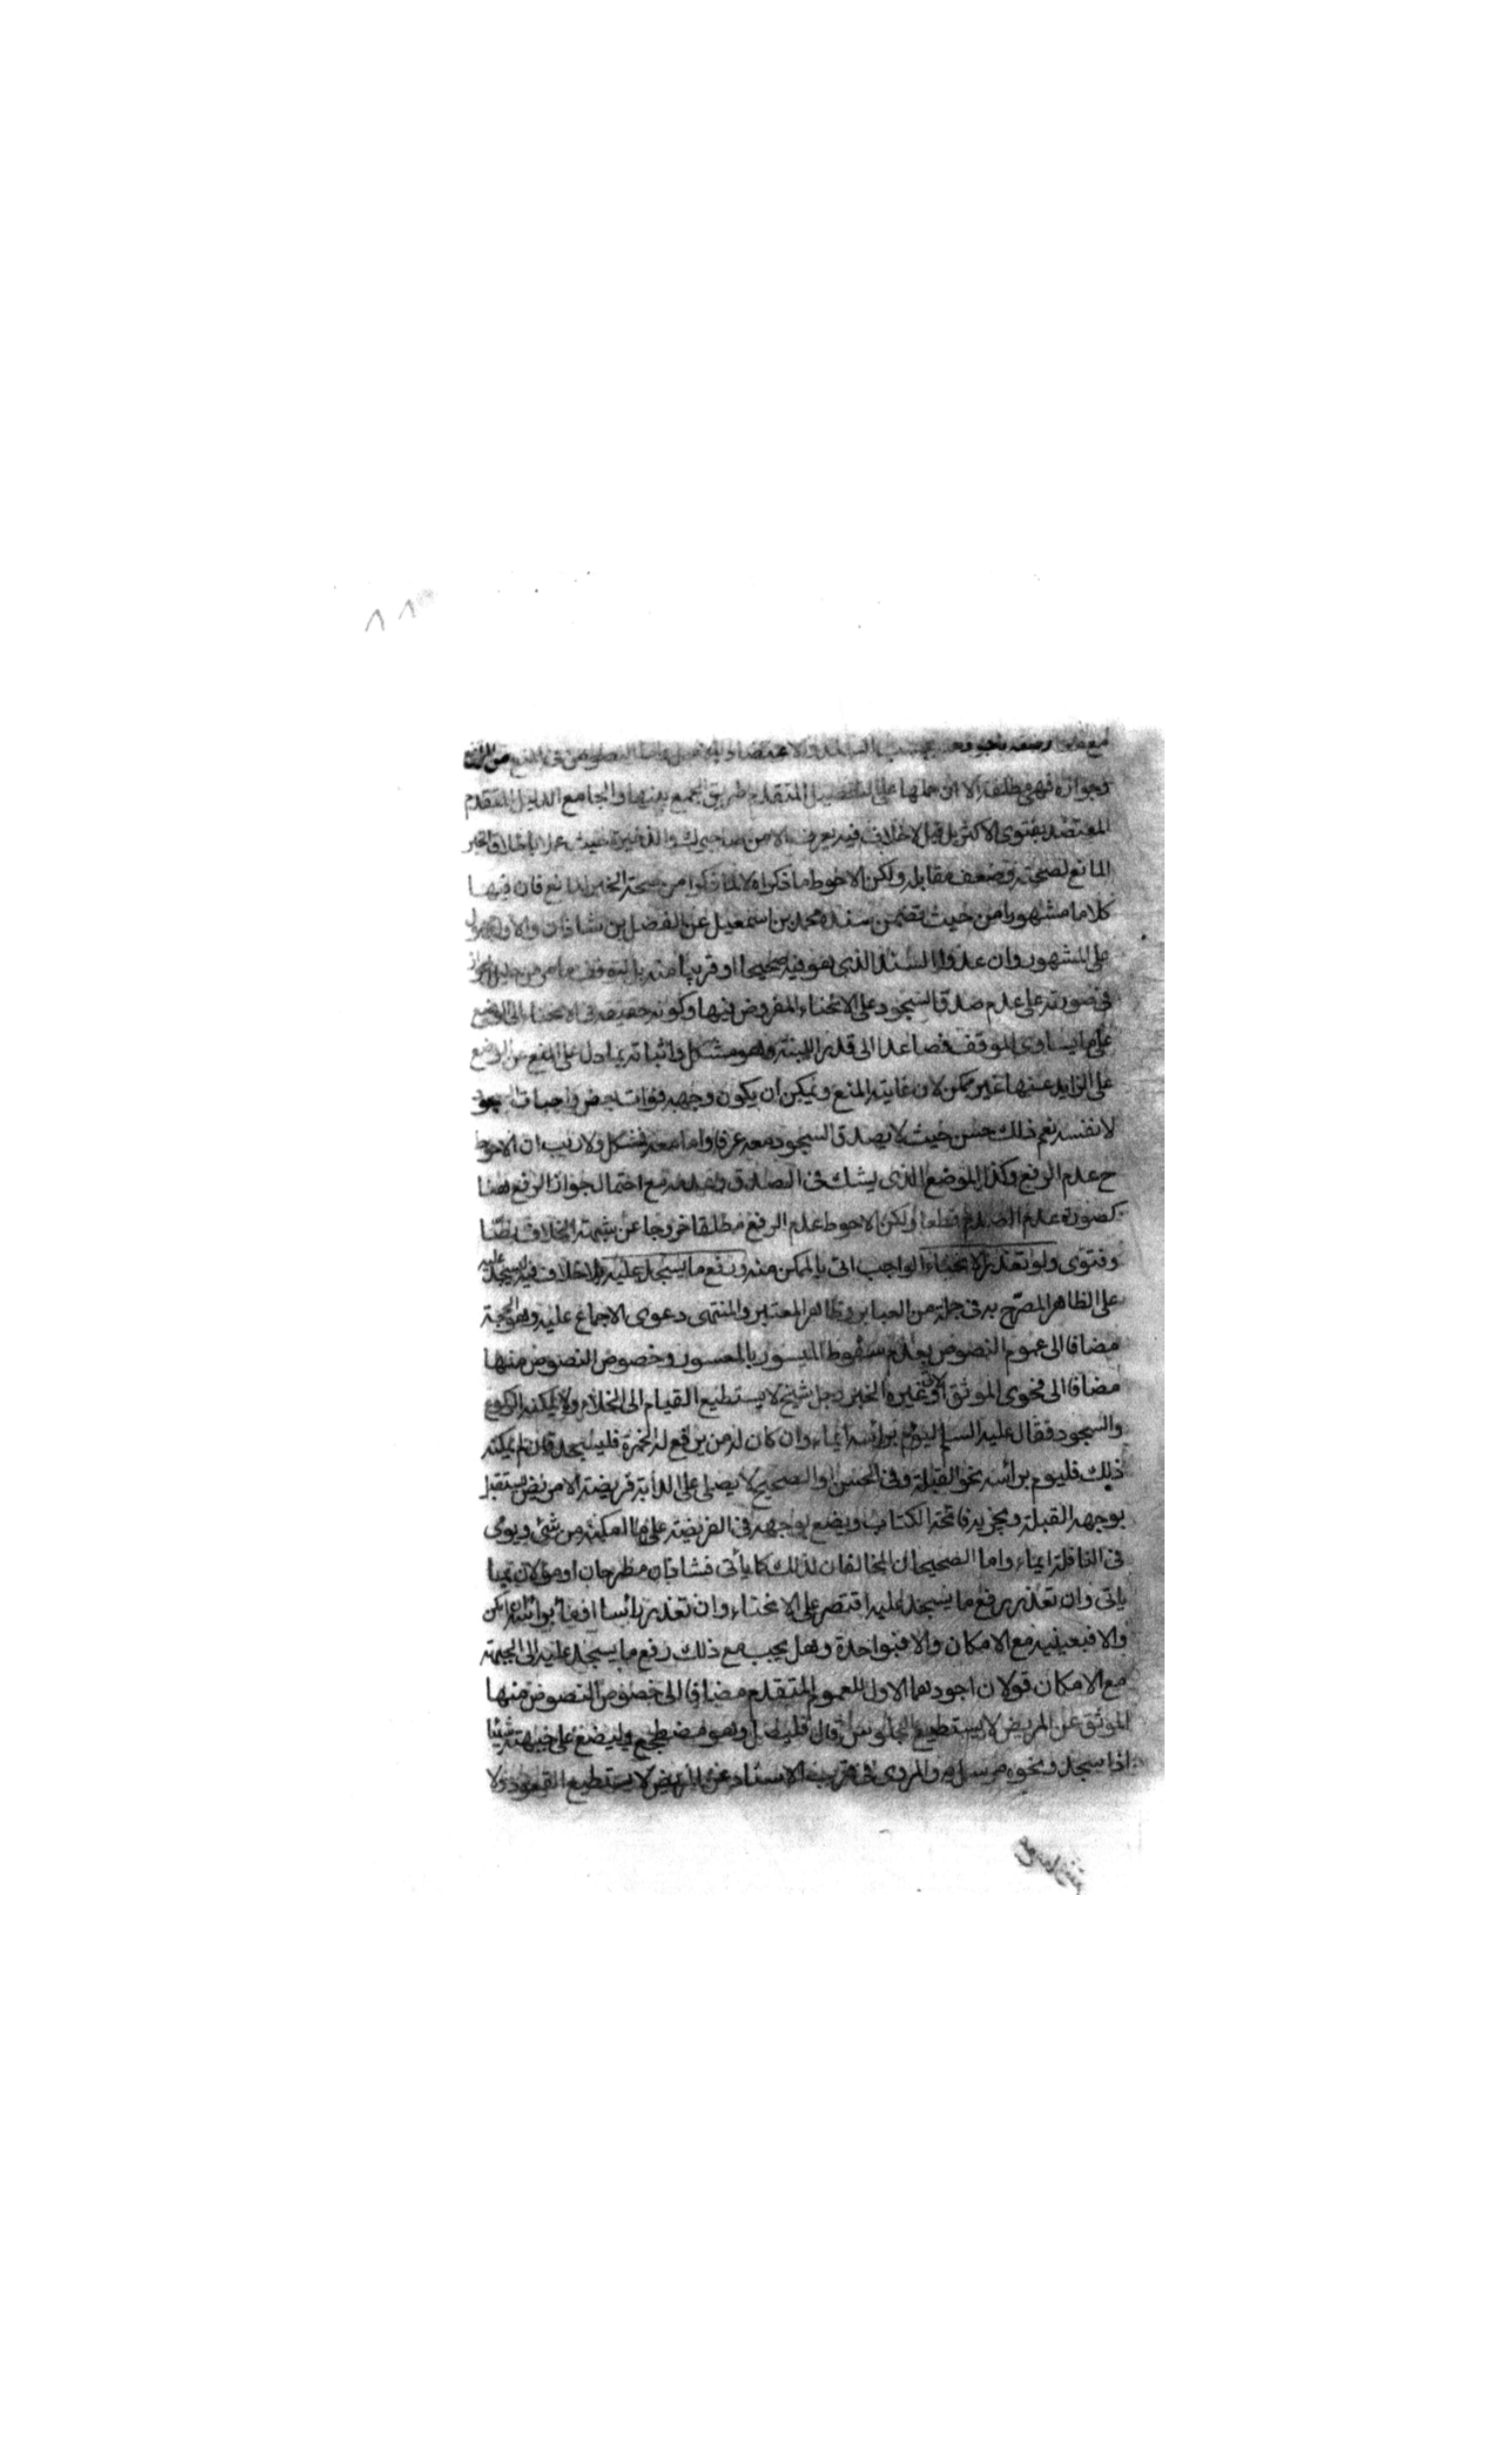 وجوازه فهي مطلقة الا ان حملها على التفصيل المتقدم طريق الجمع بينها والجامع الدليل المتقدم
المعتضد بفتوى الاكثر بل قيل لاخلاف فيه يعرف الا من صاحبي ك والذخيرة حيث عملا باطلاق الخبر
المانع لصحته وضعف مقابله ولكن الاحوط ما ذكراه لا لما ذكرا من صحة الخبر المانع فان فيها
كلاما مشهورا من حيث تضمن سنده محمد بن اسمعيل عن الفضل بن شاذان والاول مجهول
على المشهور وان عدوا السند الذي هو فيه صحيحا او قريبا منه بل لتوقف ما مر من دليل الجواز
في صورته على عدم صدق السجود على الانحناء المفروض فيها وكونه حقيقة في الانحناء الى الوضع
على ما يساوي الموقف فصاعدا الى قدر اللبنة وهو مشكل واثباته بما دل على المنع عن الوضع
على الزايد عنها غير ممكن لان غايته المنع ويمكن ان يكون وجهه فوات بعض واجبات السجود
لا نفسه نعم ذلك حسن حيث لا يصدق السجود معه عرفا واما معه فمشكل ولا ريب ان الاحوط
ح عدم الرفع وكذا الموضع الذي يشك في الصدق وعدمه مع احتمال جواز الرفع هنا
كصورة عدم الصدق قطعا ولكن الاحوط عدم الرفع مطلقا خروجا عن شبهة الخلاف نصا
وفتوى ولو تعذر الانحناء الواجب اتى بالممكن منه ورفع ما يسجد عليه بلا خلاف فيه ليسجد عليه
على الظاهر المصرح به في جملة من العباير وظاهر المعتبر والمنتهى دعوى الاجماع عليه وهو الحجة
مضافا الى عموم النصوص بعدم سقوط الميسور بالمعسور وخصوص النصوص منها
مضافا الى فحوى الموثق الاتي وغيره الخبر رجل شيخ لا يستطيع القيام الى الخلاء ولا يمكنه الركوع
والسجود فقال عليه السلم ليوم براسه ايماء وان كان له من يرفع له الخمرة فليسجد فان لم يمكنه
ذلك فليوم براسه نحو القبلة وفي الحسن او الصحيح لا يصلي على الدابة فريضة الا مريض يستقبل
بوجهه القبلة ويجزيه فاتحة الكتاب ويضع بوجهه في الفريضة على ما امكنه من شئ ويومى
في النافلة ايماء واما الصحيحان المخالفان لذلك كما يأتي فشاذان مطرحان او مؤولان بما
ياتي وان تعذر رفع ما يسجد عليه اقتصر على الانحناء وان تعذر راسا اومأ براسه ان امكن
والا فبعينيه مع الامكان والا فبواحدة وهل يجب مع ذلك رفع ما يسجد عليه الى الجبهة
مع الامكان قولان اجودهما الاول للعموم المتقدم مضافا الى خصوص النصوص منها
الموثق عن المريض لا يستطيع الجلوس قال فليصل وهو مضطجع وليضع على جبهته شيئا
اذا سجد ونحوه مرسل يه والمروى في قرب الاسناد عن المريض لا يستطيع القعود ولا